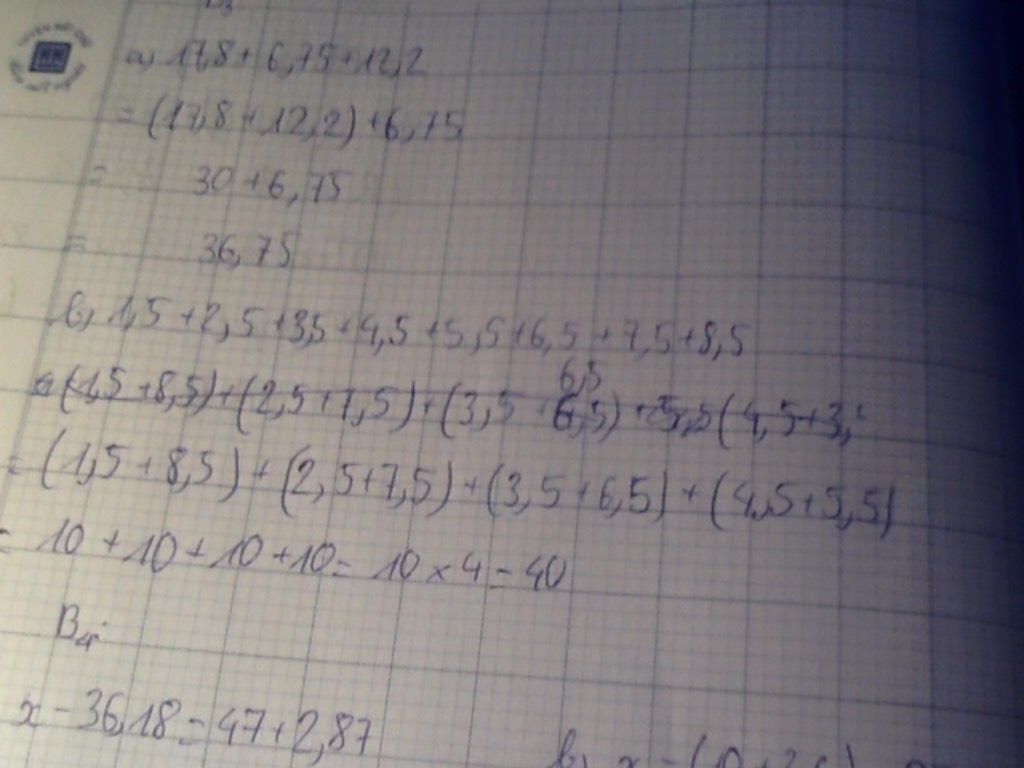 a, 17,8 + 6,75 + 12,2
= (17,8 + 12,2) + 6,75
= 30 + 6,75
= 36,75
b, 1,5 + 2,5 + 3,5 + 4,5 + 5,5 + 6,5 + 7,5 + 8,5
6,5
= (1,5 + 8,5) + (2,5 + 7,5) + (3,5 + 6,5) + 5,5 (4,5 + 3,
= (1,5 + 8,5) + (2,5 + 7,5) + (3,5 + 6,5) + (4,5 + 5,5)
= 10 + 10 + 10 + 10 = 10 × 4 = 40
B4:
x - 36,18 = 47 + 2,87
b, x - (